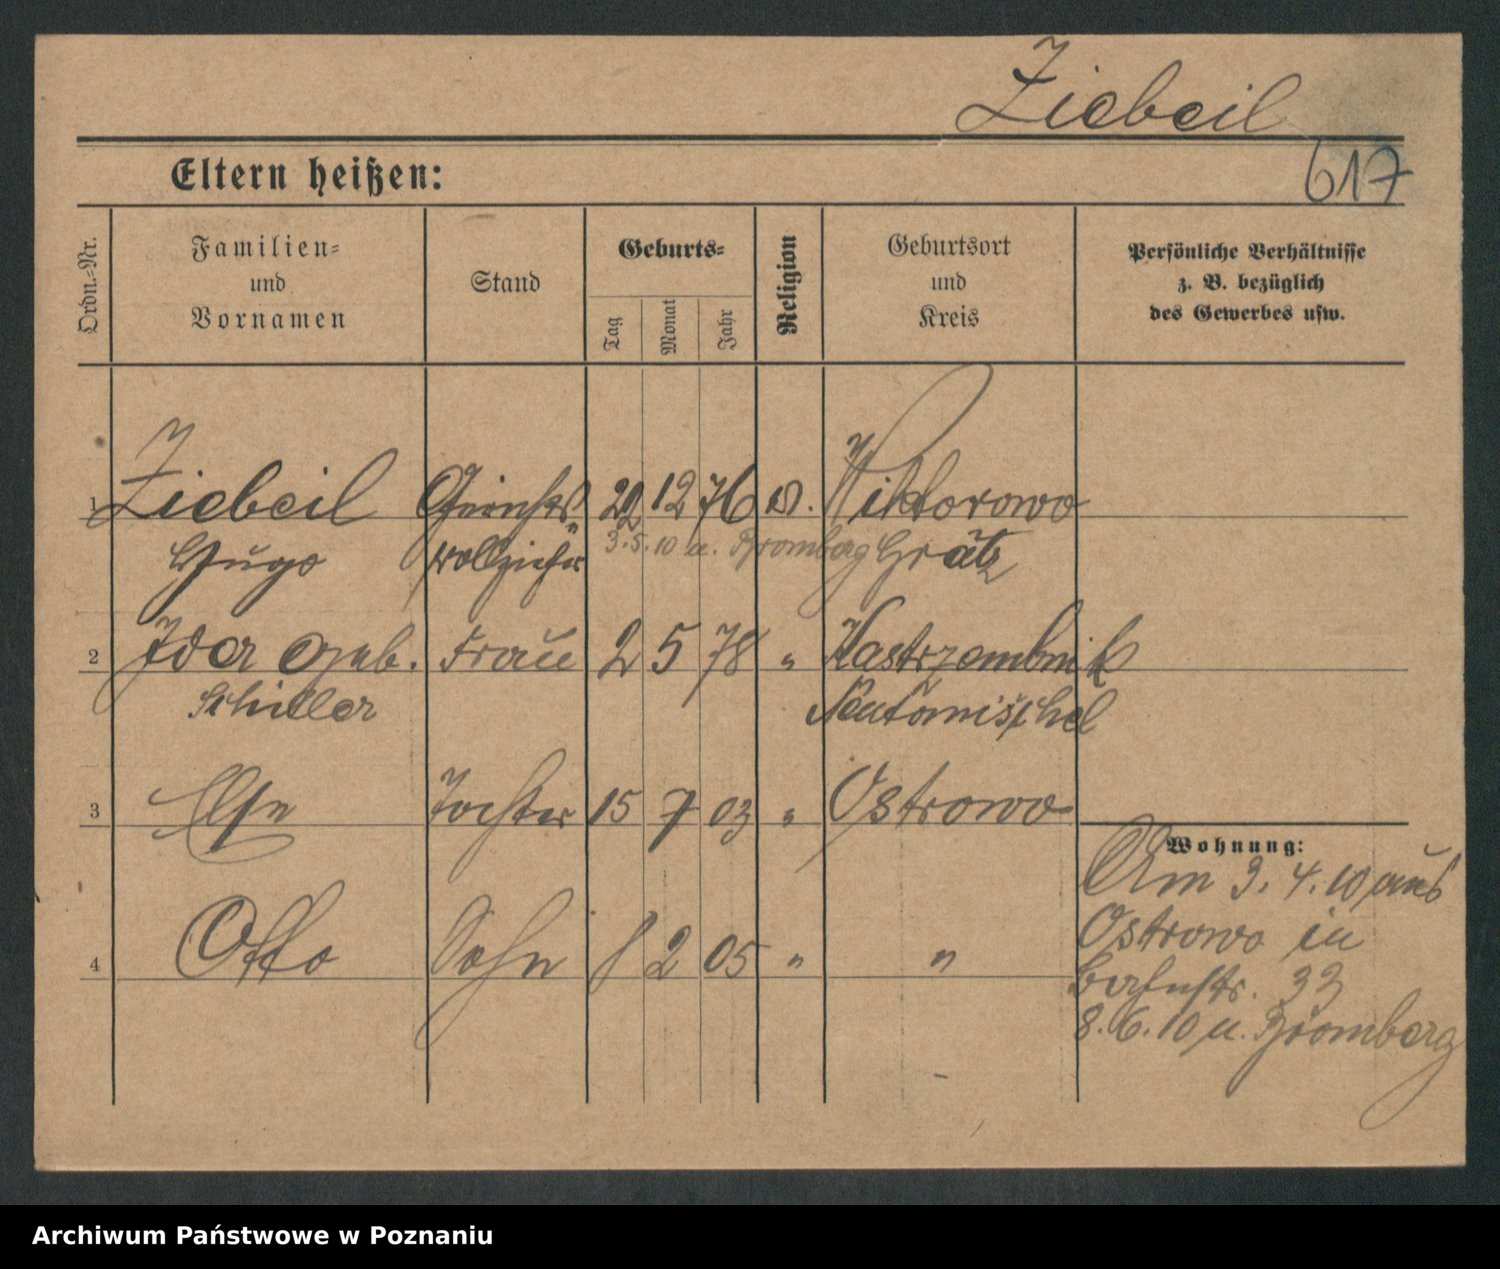 Ziebeil
617
Eltern heißen:
Ordn.-Nr.
Familien-
und
Vornamen
Stand
Geburts-
Tag
Monat
Jahr
Religion
Geburtsort
und
Kreis
Persönliche Verhältnisse
z. B. bezüglich
des Gewerbes usw.
1 Ziebeil Gerichts- 12 76 Wiktorowo
Hugo vollzieher 3.5.10 u. Bromberg Grätz
2 Ida geb. Frau 2 5 78 " Kastrzembnik
Schiller Neutomischel
3 Else Tochter 15 7 03 " Ostrowo
Wohnung:
Am 3. 4. 10 aus
4 Otto Sohn 8 2 05 " "
Ostrowo in
Bahnstr. 33
8. 6. 10 u. Bromberg
Archiwum Państwowe w Poznaniu